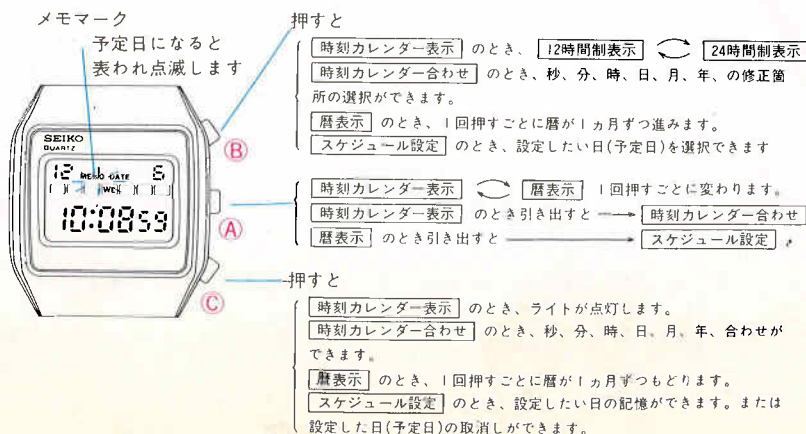 メモマーク
予定日になると
表われ点滅します
SEIKO
QUARTZ
12 MEMO DATE 6
WED
10:08 59
B
A
C
押すと
時刻カレンダー表示 のとき、 12時間制表示 24時間制表示
時刻カレンダー合わせ のとき、秒、分、時、日、月、年、の修正箇
所の選択ができます。
暦表示 のとき、1回押すごとに暦が1ヵ月ずつ進みます。
スケジュール設定 のとき、設定したい日(予定日)を選択できます
時刻カレンダー表示 暦表示 1回押すごとに変わります。
時刻カレンダー表示 のとき引き出すと 時刻カレンダー合わせ
暦表示 のとき引き出すと スケジュール設定 。
押すと
時刻カレンダー表示 のとき、ライトが点灯します。
時刻カレンダー合わせ のとき、秒、分、時、日、月、年、合わせが
できます。
暦表示 のとき、1回押すごとに暦が1ヵ月ずつもどります。
スケジュール設定 のとき、設定したい日の記憶ができます。または
設定した日(予定日)の取消しができます。